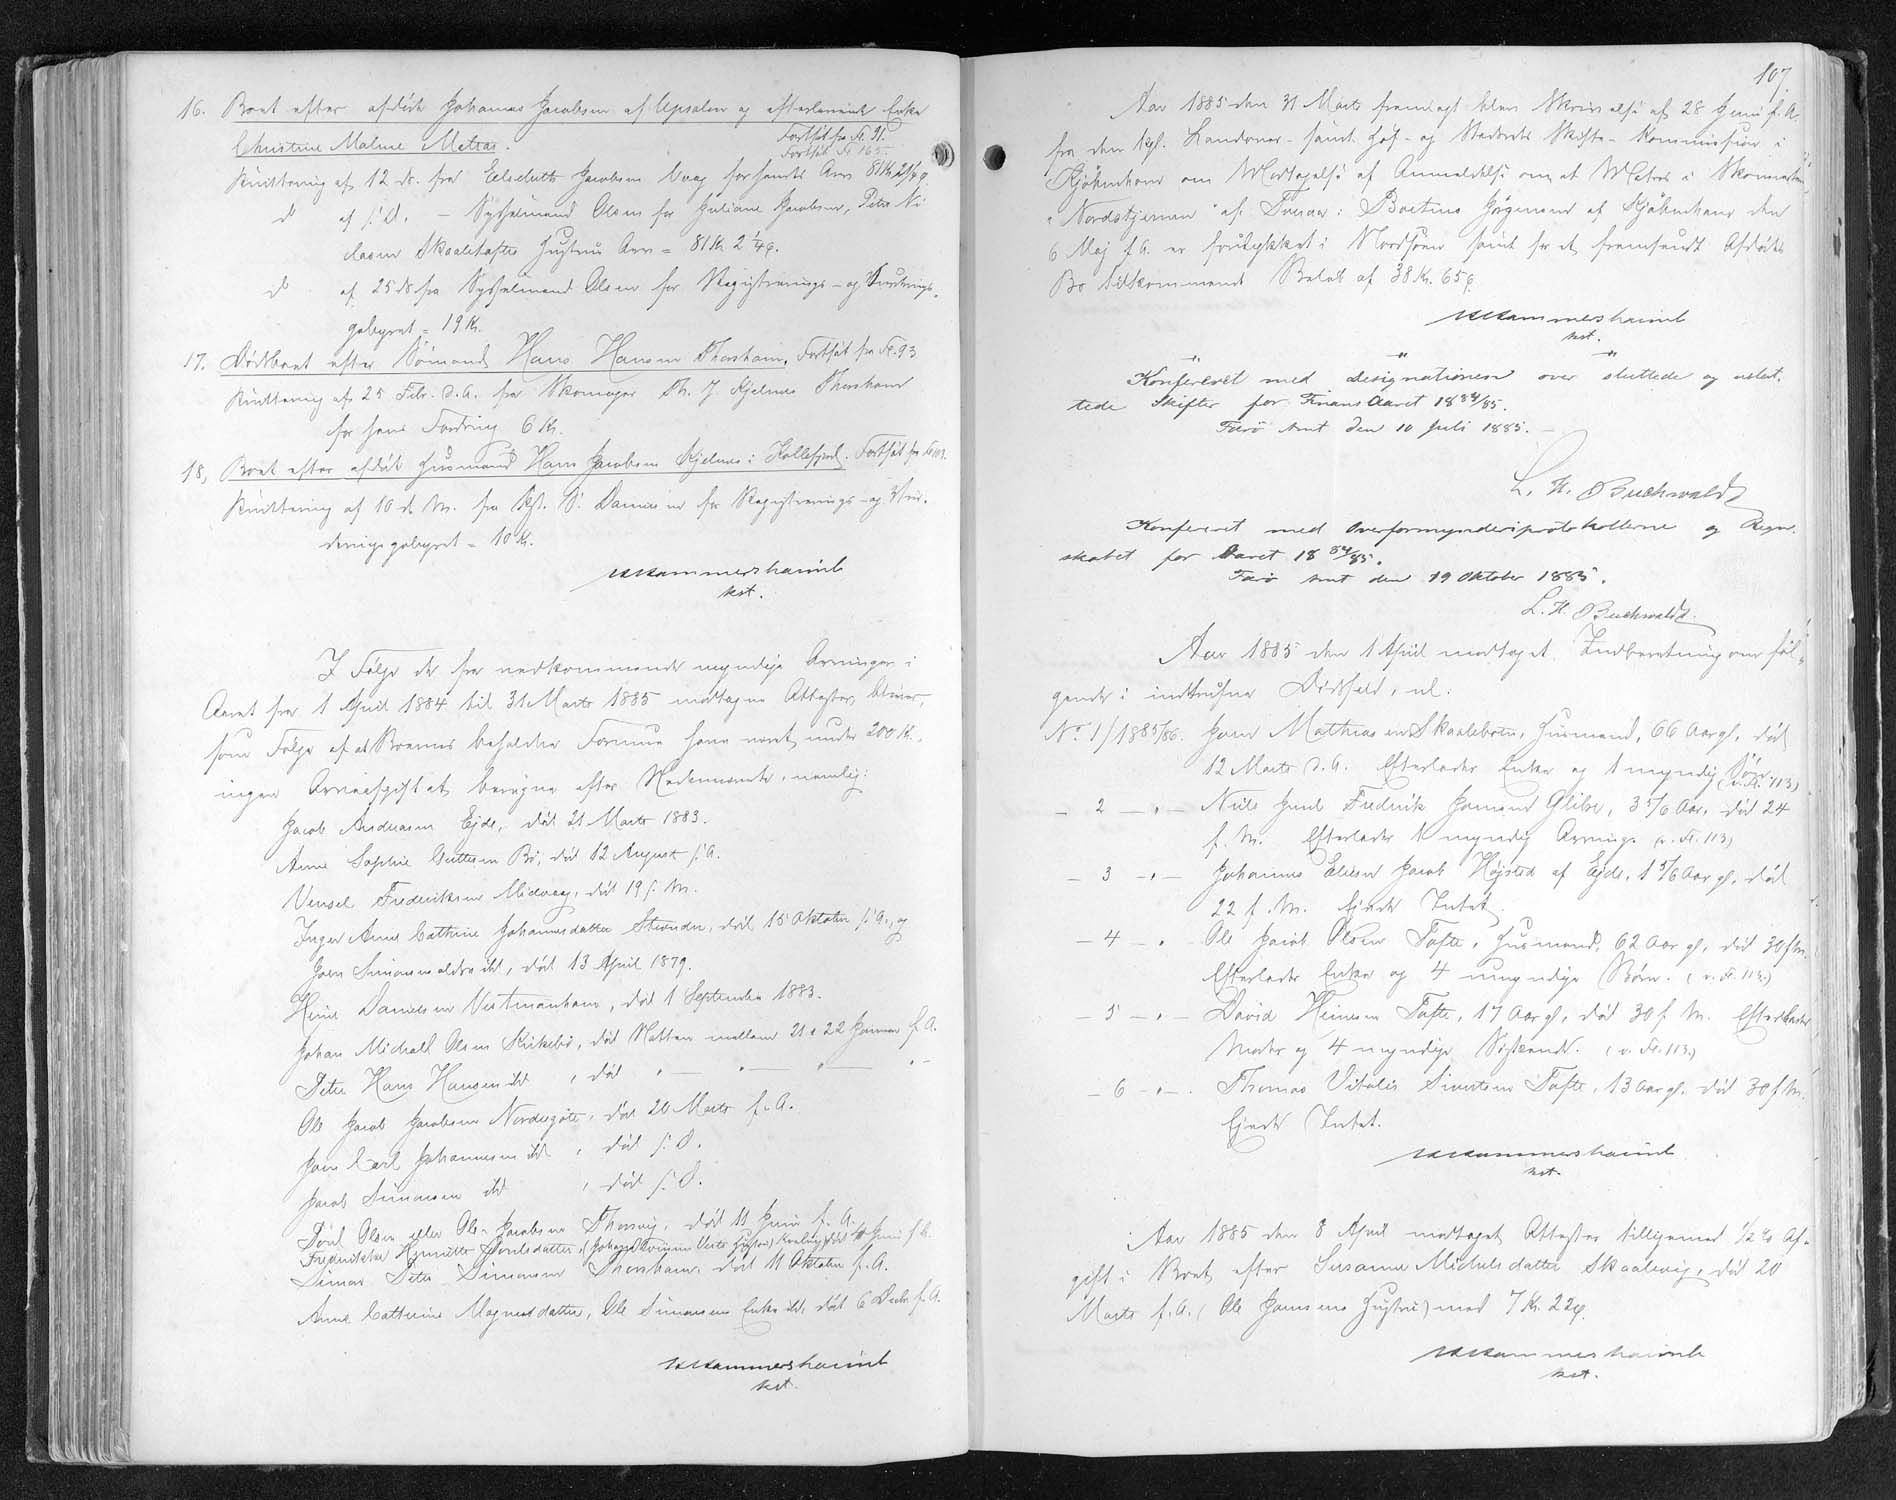 16. Boet efter afdøde Johannes Jacobsen af Upsalen og efterlevende Enke
Christine Malene Metras.
Fortsat fra Fl. 91.
Fortsat Fl. 165
Kvittering af 12 ds. fra Elsdutte Jacobsen Vaag for hendes Arv 81 Kr 2 1/4 ø.
do af s. D. – Sysselmand Olsen for Juliane Jacobsen, Peter Ni-
clasen Skaaletoftes Hustrus Arv = 81 Kr. 2 1/4 ø.
do af 25 ds fra Sysselmand Olsen for Registrerings- og Vurderings-
gebyret = 19 Kr.
17. Dødsboet efter Sømand Hans Hansen Thorshavn. Fortsat fra Fl. 93
Kvittering af 25 Febr. d. A. fra Skomager Th. J. Kjelnes Thorshavn
for hans Fordring 6 Kr.
18, Boet efter afdøde Husmand Hans Jacobsen Kjelnes i Kollefjord. Fortsat fra Fl 103.
Kvittering af 10 d. M. fra Kst. S. Danielsen for Registrerings- og Vur-
deringsgebyret = 10 Kr.
Hammershaimb
kst.
I Følge de fra nedkommende myndige Arvinger i
Aaret fra 1 April 1884 til 31 Marts 1885 modtagne Attester bliver,
som Følge af at Boernes beholdne Formue have været under 200 Kr.,
ingen Arveafgift at beregne efter Nedennævnte, nemlig:
Jacob Andreasen Ejde, død 21 Marts 1883.
Anne Sophie Guttesen Bø, død 12 August s. A.
Vensel Frederiksen Midvaag, død 19 s. M.
Inger Anne Cathrine Johannesdatter Strænder, død 15 Oktober s. A., og
Joen Simonsen ældre ibd, død 13 April 1879.
Heine Danielsen Vestmanhavn, død 1 September 1883.
Johan Michael Olsen Kirkebø, død Natten mellem 21 & 22 Januar f. A.
Peter Hans Hansen ibd , død " — " — " — " –
Ole Jacob Jacobsen Nordregøte, død 20 Marts f. A.
Jens Carl Johannesen ibd , død s. D.
Jacob Simonsen ibd , død s. D.
Poul Olsen eller Ole- Jacobsen Thorsvig, død 11 Juni f. A.
Frederikke Henriette Poulsdatter, (Johan Hvirum Verts Hustru) Kvalvig død 4 Juni f. A.
Simon Peter Simonsen Thorshavn død 11 Oktober f. A.
Anne Cathrine Magnusdatter, Ole Simonsens Enke ibd, død 6 Decbr f. A.
Hammershaimb
kst.
107
Aar 1885 den 31 Marts fremlagt blev Skrivelse af 28 Juni f. A.
fra den kgl. Landsover- samt Hof- og Stadsrets Skifte- Kommission i
Kjøbenhavn om Modtagelse af Anmeldelse om at Matros i Skonnerten
"Nordstjernen" af Fanø: Boetius Jørgensen af Kjøbenhavn den
6 Maj f. A. er forulykket i Nordsøen samt for et fremsendt Afdødes
Bo tilkommende Beløb af 38 Kr. 65 ø.
Hammershaimb
kst.
" " "
Konfereret med Designationen over sluttede og uslut-
tede Skifter for Finans Aaret 1884/85.
Færø Amt den 10 Juli 1885. –
L. H. Buchwaldt
Konfereret med Overformynderiprotokollerne og Regn-
skabet for Aaret 1884/85.
Færø Amt den 19 Oktober 1885.
L. H. Buchwaldt.
Aar 1885 den 1 April modtaget Indberetning om føl-
gende i indtrufne Dødsfald, nl.
No. 1/1885/86. Joen Mathiasen Skaalebrew, Husmand, 66 Aar gl. død
12 Marts d. A. Efterlader Enke og 1 myndig Søn. (v. Fl. 113)
– 2 – " – Niels Juul Fredrik Joensen Glibre, 3 5/6 Aar, død 24
f. M. Efterlader 1 myndig Arving. (v. Fl. 113)
– 3 – " – Johannes Elias Jacob Højsted af Ejde, 1 5/6 Aar gl., død
22 f. M. Ejede Intet.
– 4 – " – Ole Jacob Olsen Tofte, Husmand, 62 Aar gl., død 30 f. M.
Efterlader Enke og 4 umyndige Børn. (v. Fl. 113.)
– 5 – " – David Heinesen Tofte, 17 Aar gl, død 30 f. M. Efterlader
Moder og 4 myndige Søskende. (v. Fl. 113.)
– 6 – " – . Thomas Vitalis Sivertsen Tofte, 13 Aar gl. død 30 f. M.
Ejede Intet.
Hammershaimb
kst.
Aar 1885 den 8 April modtaget Attester tilligemed 1/2 % Af-
gift i Boet efter Susanne Michelsdatter Skaalevig, død 20
Marts f. A. (Ole Joensens Hustru) med 7 Kr. 22 ø.
Hammershaimb
kst.